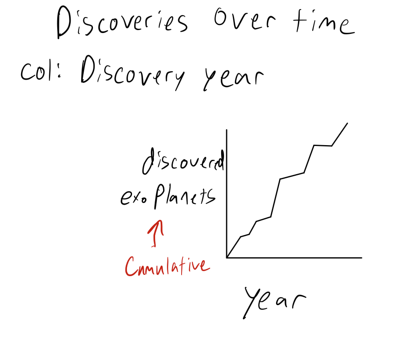 Discoveries over time
Col: Discovery year
discovered
exoPlanets
Cumulative
year